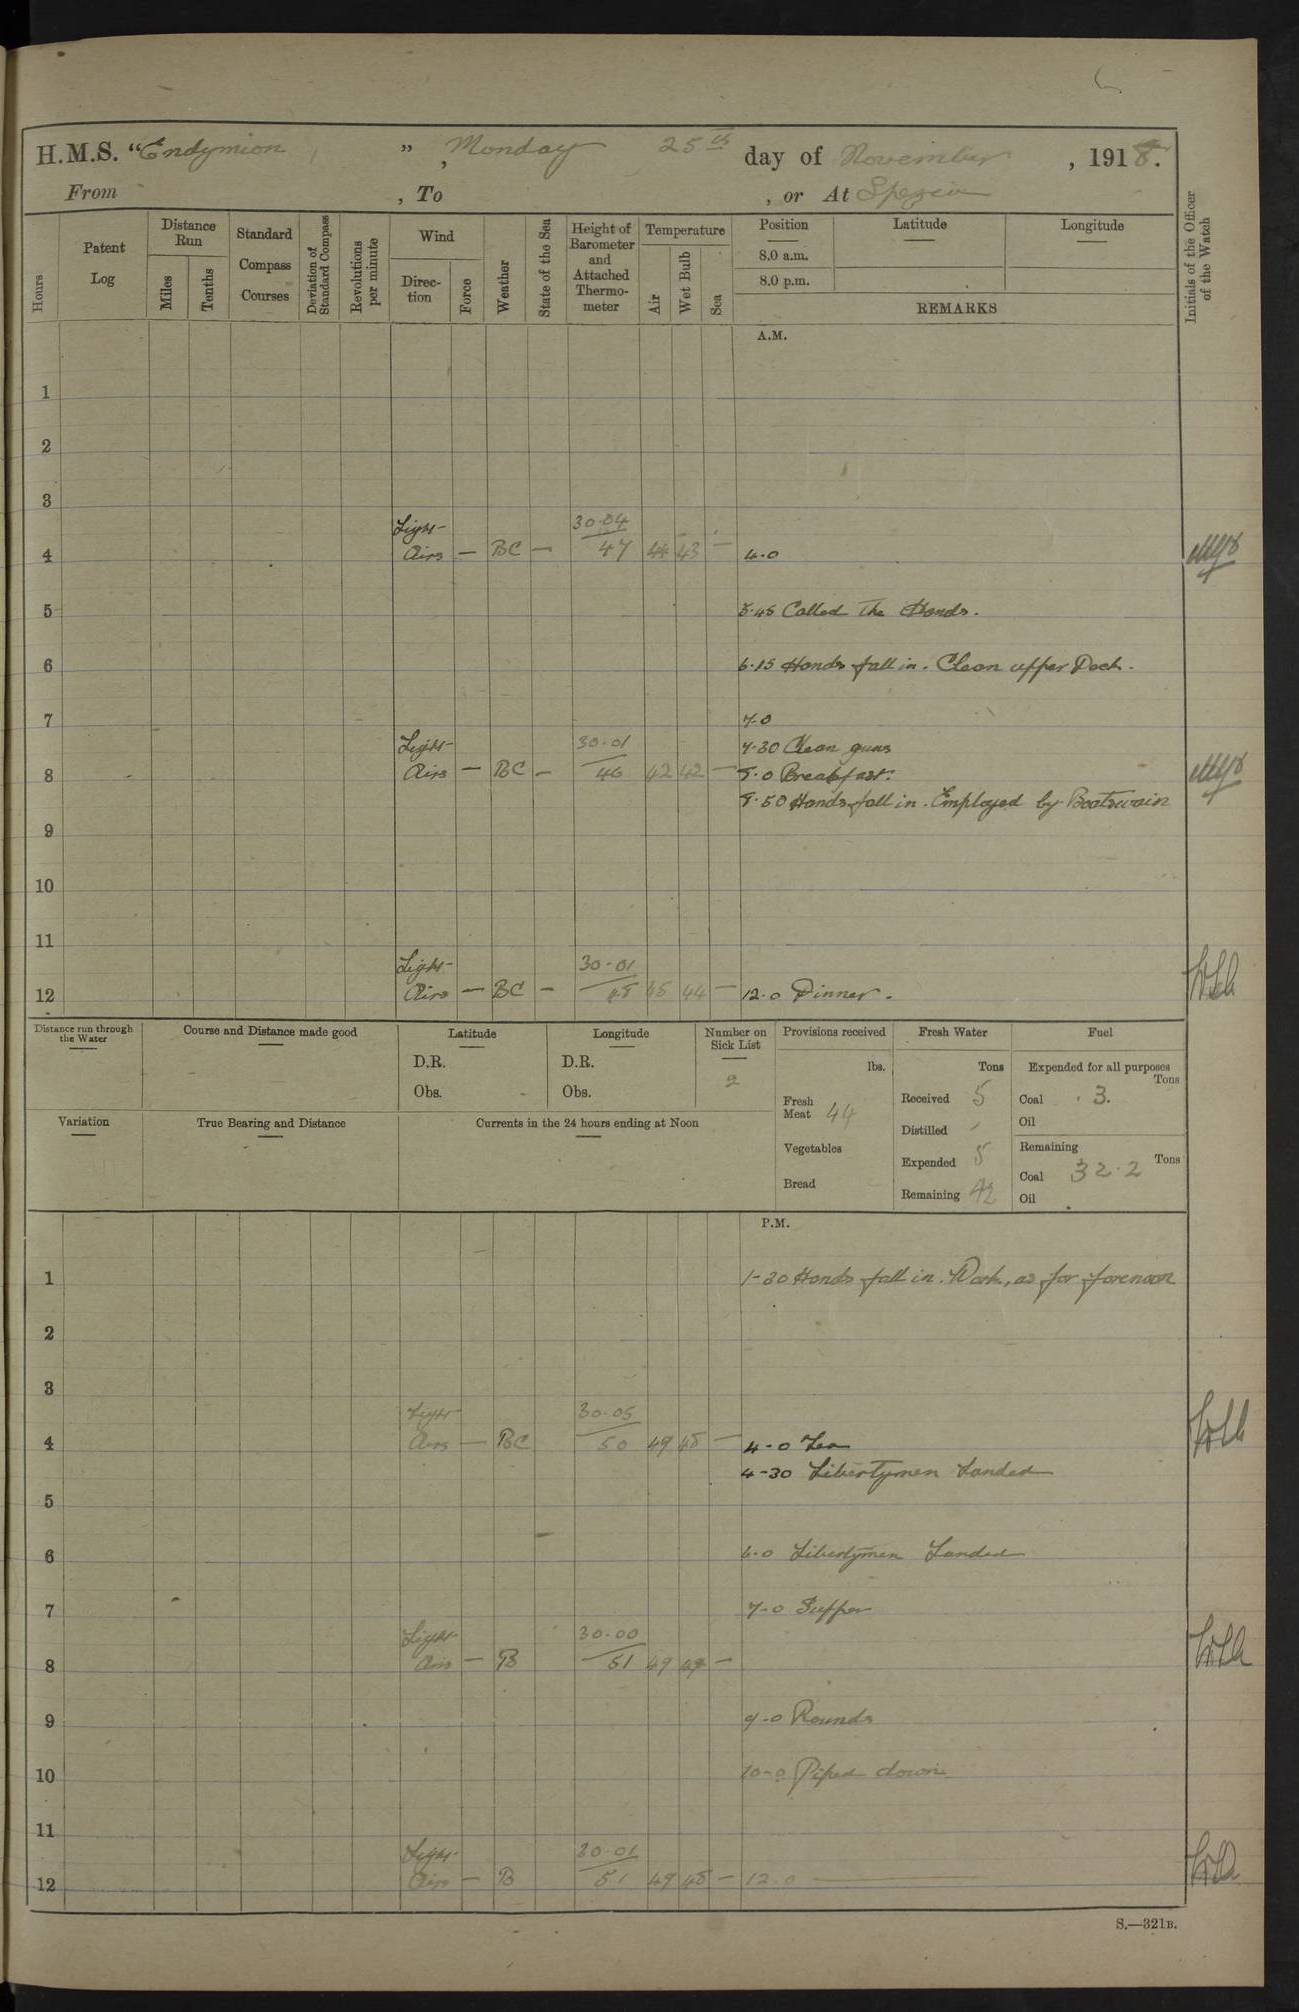 H.M.S. "Endymion", Monday 25th day of November, 1918.
From , To , or At Spezia
Hours
Patent Log
Distance Run
Miles
Tenths
Standard Compass Courses
Deviation of Standard Compass
Revolutions per minute
Wind
Direction
Force
Weather
State of the Sea
Height of Barometer and Attached Thermometer
Temperature
Air
Wet Bulb
Sea
Position
8.0 a.m.
8.0 p.m.
Latitude
Longitude
REMARKS
Initials of the Officer of the Watch
A.M.
1
2
3
Light 30.04
4 Airs — BC — 47 44 43 — 4.0
5 5.45 Called the Hands.
6 6.15 Hands fall in. Clean upper Deck.
7 7.0
Light 30.01 7.30 Clean guns
8 Airs — BC — 46 42 42 — 8.0 Breakfast.
8.50 Hands fall in. Employed by Boatswain
9
10
11
Light 30.01
12 Airs — BC — 48 45 44 — 12.0 Dinner.
Distance run through the Water
Course and Distance made good
Latitude
D.R.
Obs.
Longitude
D.R.
Obs.
Number on Sick List
2
Provisions received
lbs.
Fresh Meat 44
Vegetables
Bread
Fresh Water
Tons
Received 5
Distilled
Expended 5
Remaining 42
Fuel
Expended for all purposes
Tons
Coal 3.
Oil
Remaining
Tons
Coal 32.2
Oil
Variation
True Bearing and Distance
Currents in the 24 hours ending at Noon
P.M.
1 1-30 Hands fall in. Work, as for forenoon
2
3
Light 30.05
4 Airs — BC 50 49 48 — 4-0 Tea
4-30 Libertymen Landed
5
6 6.0 Libertymen Landed
7 7-0 Supper
Light 30.00
8 Airs — B 51 49 —
9 9-0 Rounds
10 10-0 Piped down
11
Light 30.01
12 Airs — B 51 49 48 — 12.0
S.—321B.